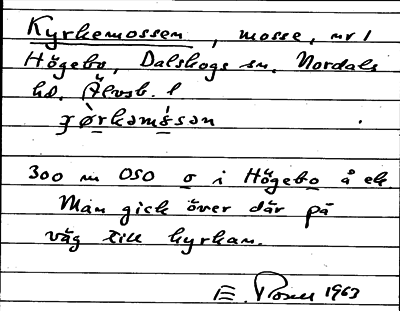 Kyrkemossen, mosse, nr 1
Högebo, Dalskogs sn, Nordals
hd. Älvsb. l.
300 m OSO o i Högebo å ek.
Man gick över där på
väg till kyrkan.
E. 1963